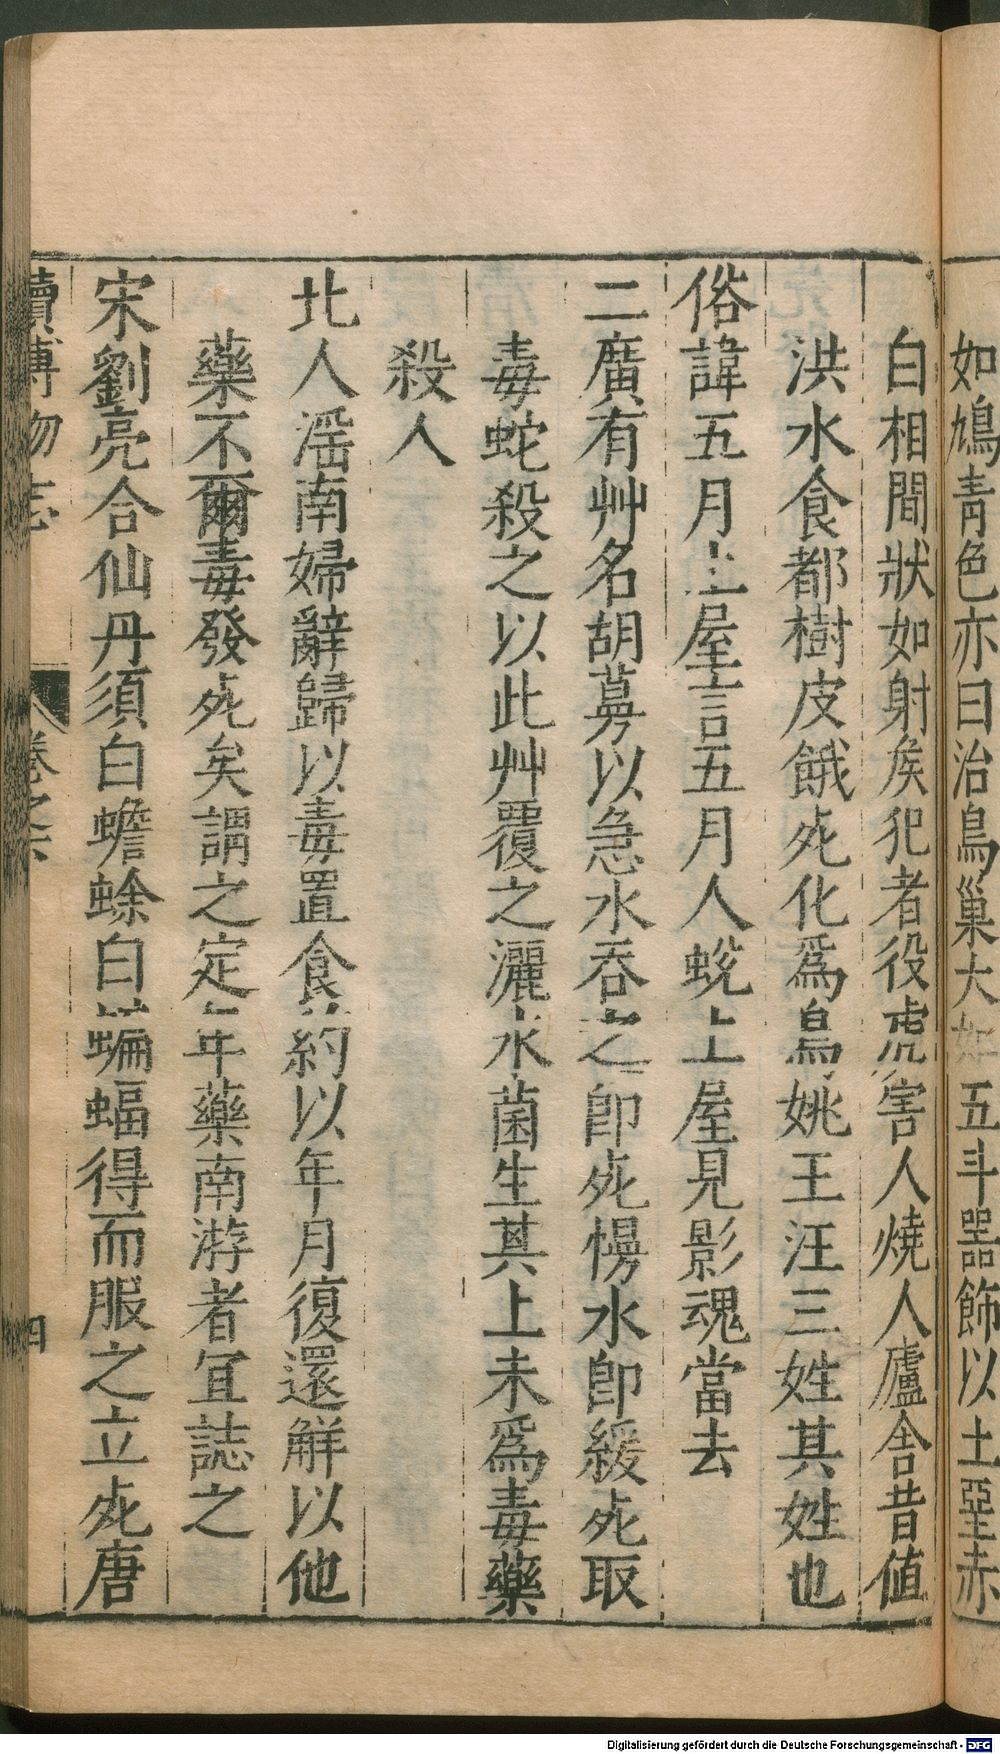 如鳩青色亦曰治鳥巢大如五斗器飾以土堊赤
白相間狀如射矦犯者役虎害人燒人廬舍昔值
洪水食都樹皮餓死化爲鳥姚王汪三姓其姓也
俗諱五月上屋言五月人蛻上屋見影魂當去
二廣有艸名胡蔓以急水吞之卽死慢水卽緩死取
毒蛇殺之以此艸覆之灑水菌生其上末爲毒藥
殺人
北人滛南婦辭歸以毒置食約以年月復還解以他
藥不爾毒發死矣謂之定年藥南游者宜誌之
宋劉亮合仙丹須白蟾蜍白蝙蝠得而服之立死唐
續博物志
卷之六
四
Digitalisierung gefördert durch die Deutsche Forschungsgemeinschaft - DFG